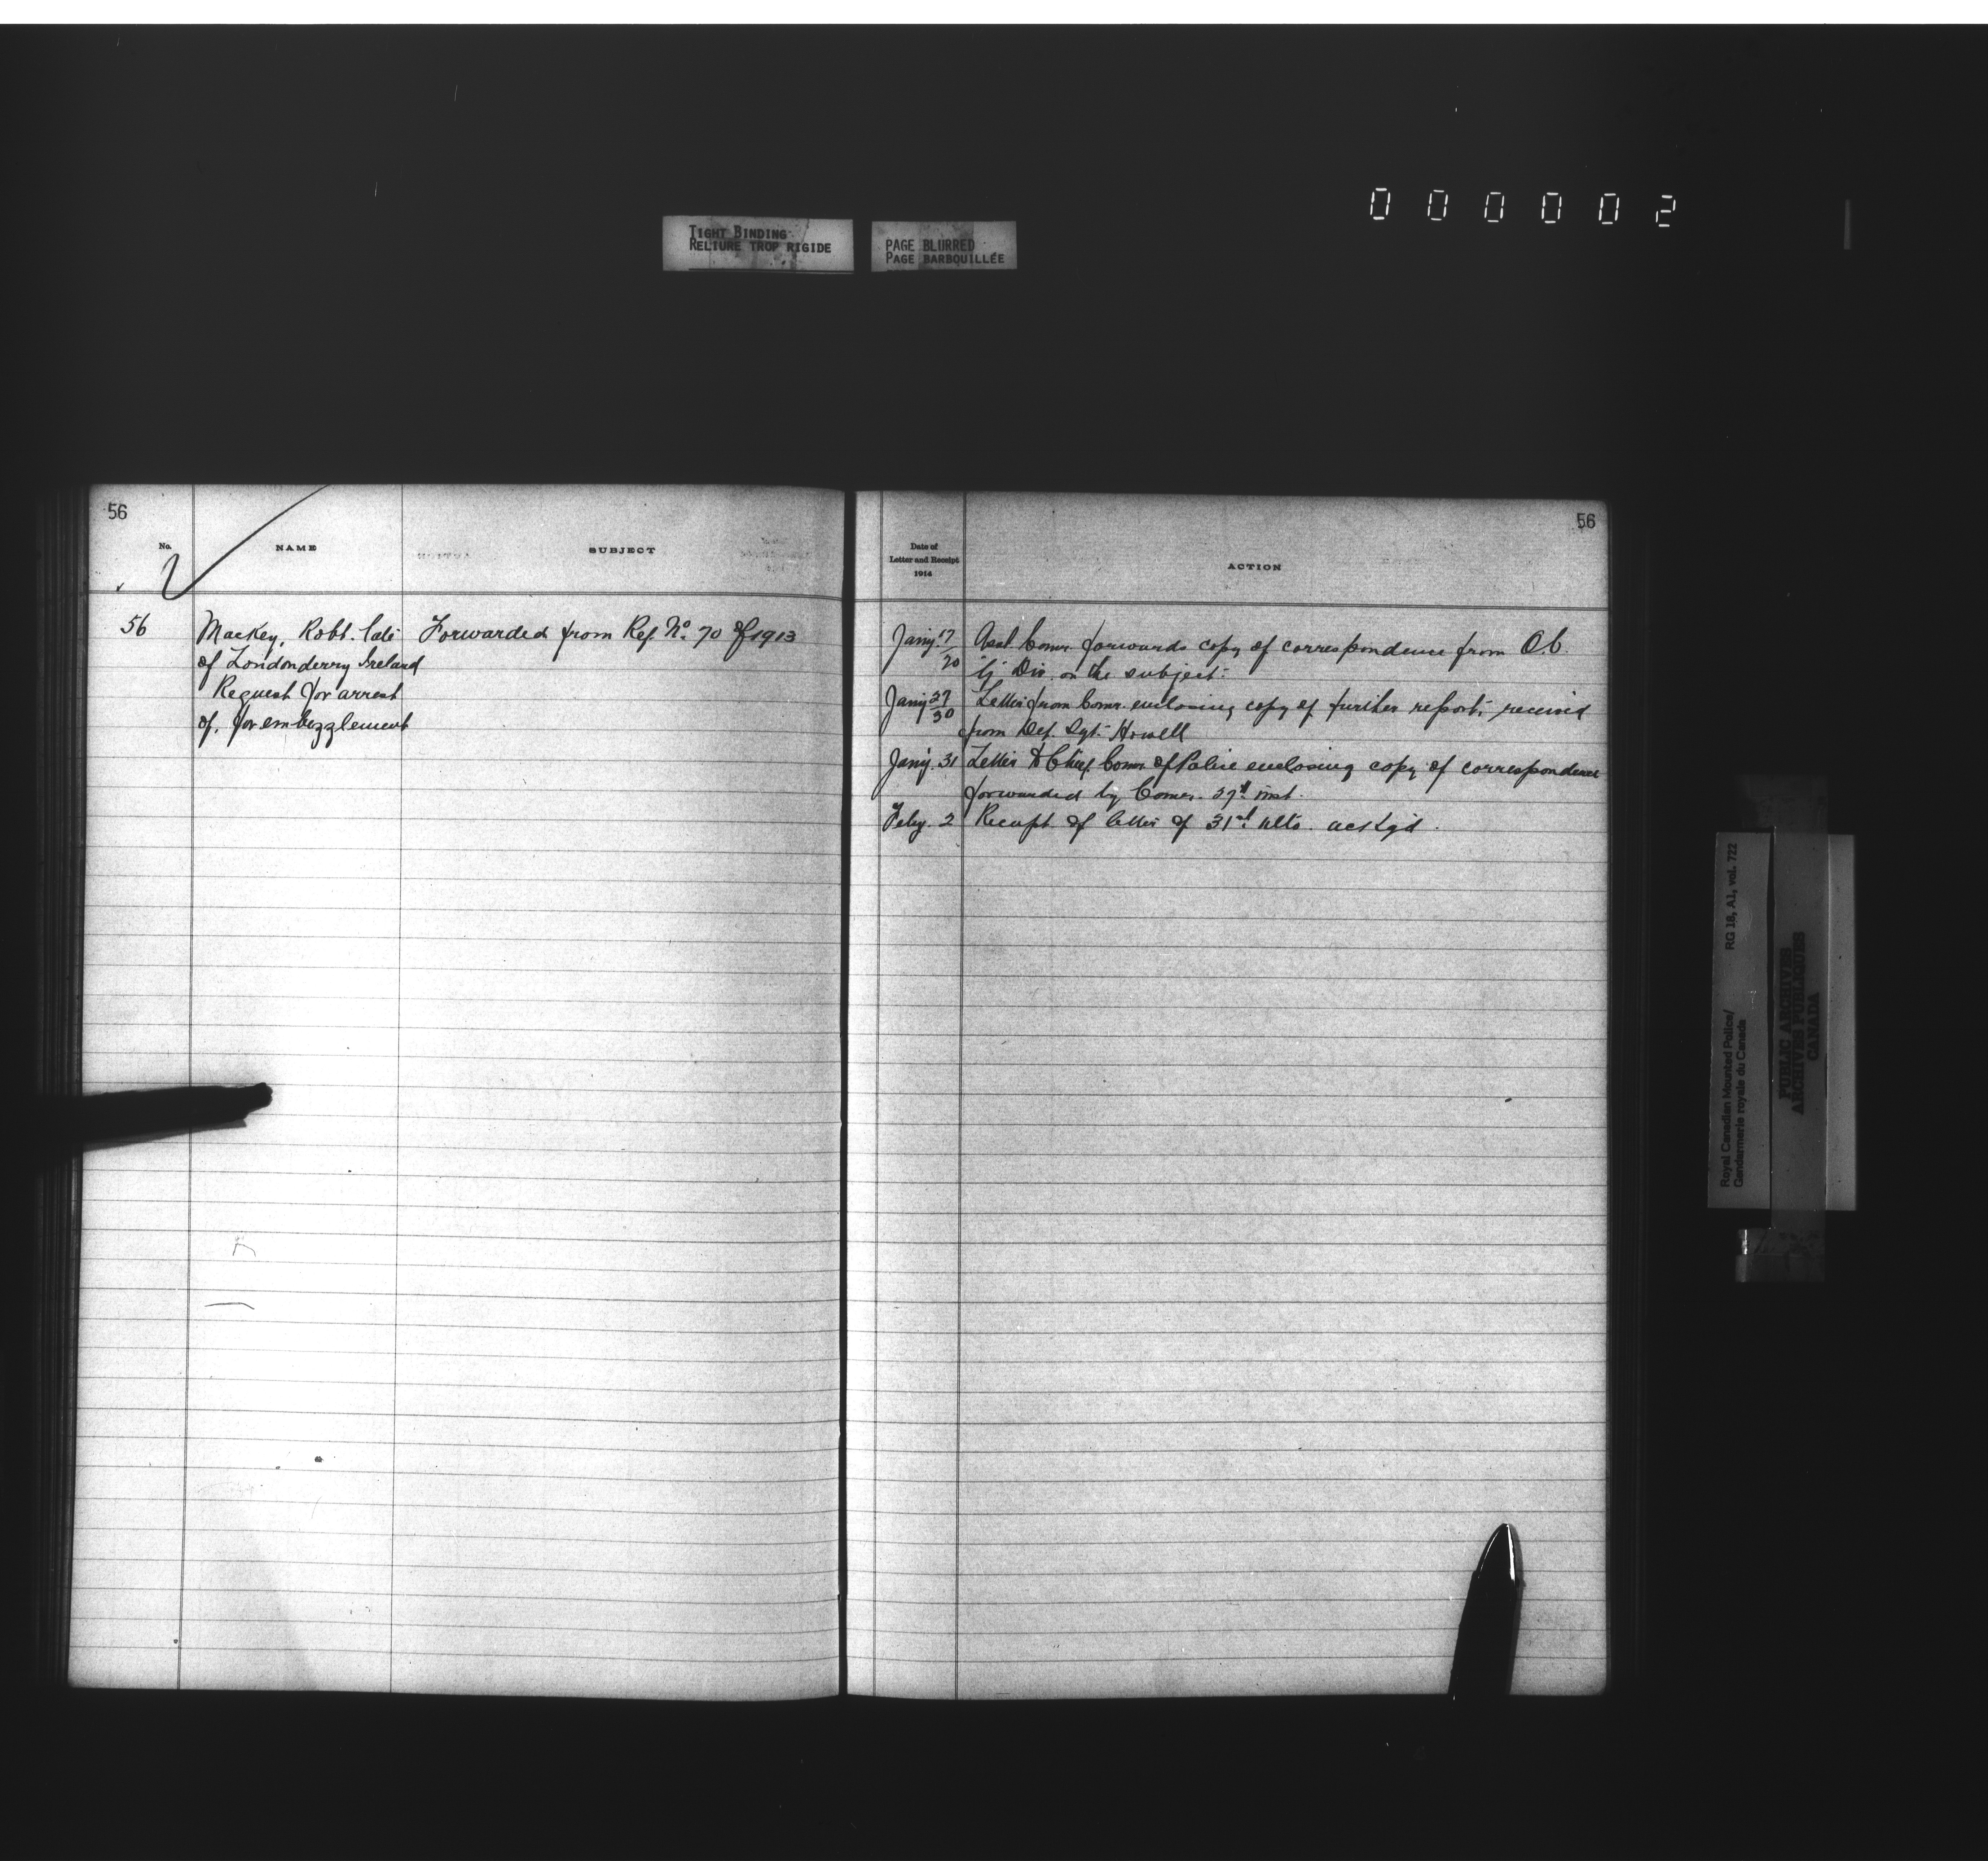 000002
TIGHT BINDING
RELIURE TROP RIGIDE
PAGE BLURRED
PAGE BARBOUILLÉE
56
No.
NAME
SUBJECT
56
Mackey, Robt. late
of Londonderry Ireland
Request for arrest
of, for embezzlement
Forwarded from Ref. No. 70 of 1913
56
Date of
Letter and Receipt
1914
ACTION
Jany 17/20 Asst. Comr. forwards copy of correspondence from O.C.
"G" Div. on the subject.
Jany 27/30 Letter from Comr. enclosing copy of further report, received
from Det. Sgt. Howell
Jany. 31 Letter to Chief Comr. of Police enclosing copy of correspondence
forwarded by Comr. 27th inst.
Feby. 2 Receipt of letter of 31st ulto. ackgd.
Royal Canadian Mounted Police/
Gendarmerie royale du Canada
RG 18, A1, vol. 722
PUBLIC ARCHIVES
ARCHIVES PUBLIQUES
CANADA